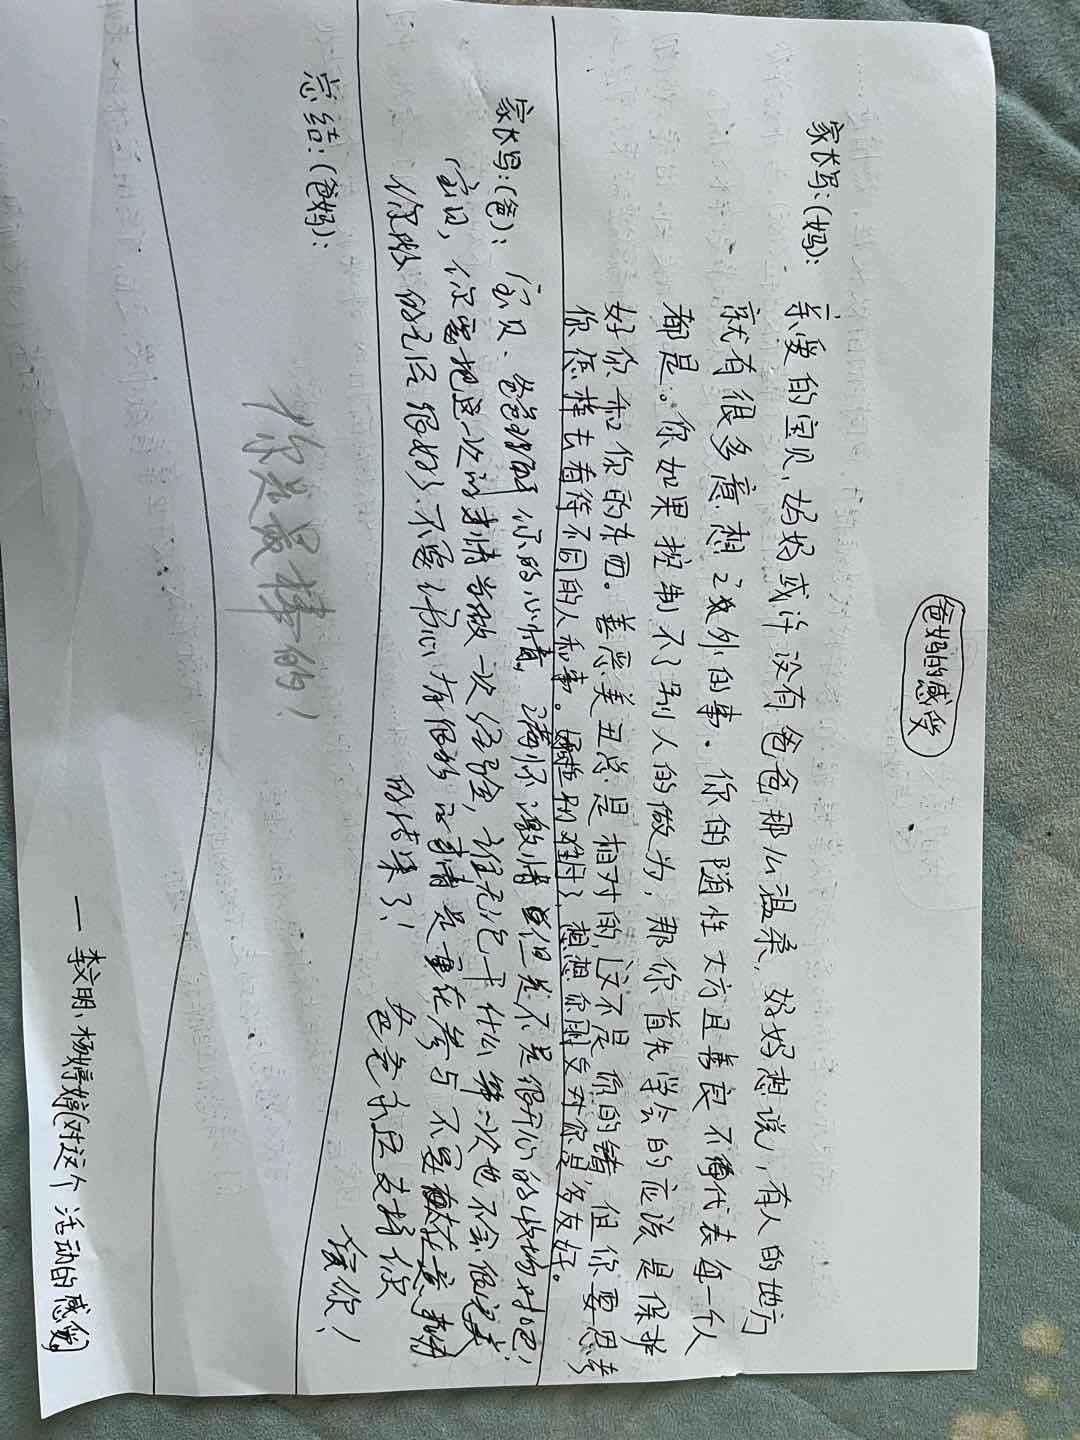 爸妈的感受
家长写:(妈):
亲爱的宝贝,妈妈或许没有爸爸那么温柔,妈妈想说,有人的地方
就有很多意想之外的事.你的随性大方且善良不代表每一个人
都是。你如果控制不了别人的做为,那你首先学会的应该是保护
好你和你的东西。善恶美丑总是相对的,这不是你的错,但你要思考
你怎样去看待不同的人和事。别难过了,想想你朋友对你是多友好。
家长写:(爸):
宝贝、爸爸理解你的心情。满怀激情但是不是很开心的收场对吧!
宝贝,你需把这一次的事情当做一次经验,谁无论干什么第一次也不会很完美
你做的已经很好了.不要伤心有很多的事情是重在参与不要在意事情
的结果了!
爸爸永远支持你
爱你!
总结:(爸妈):
你是最棒的!
— 李文明、杨婷婷(对这个活动的感觉)